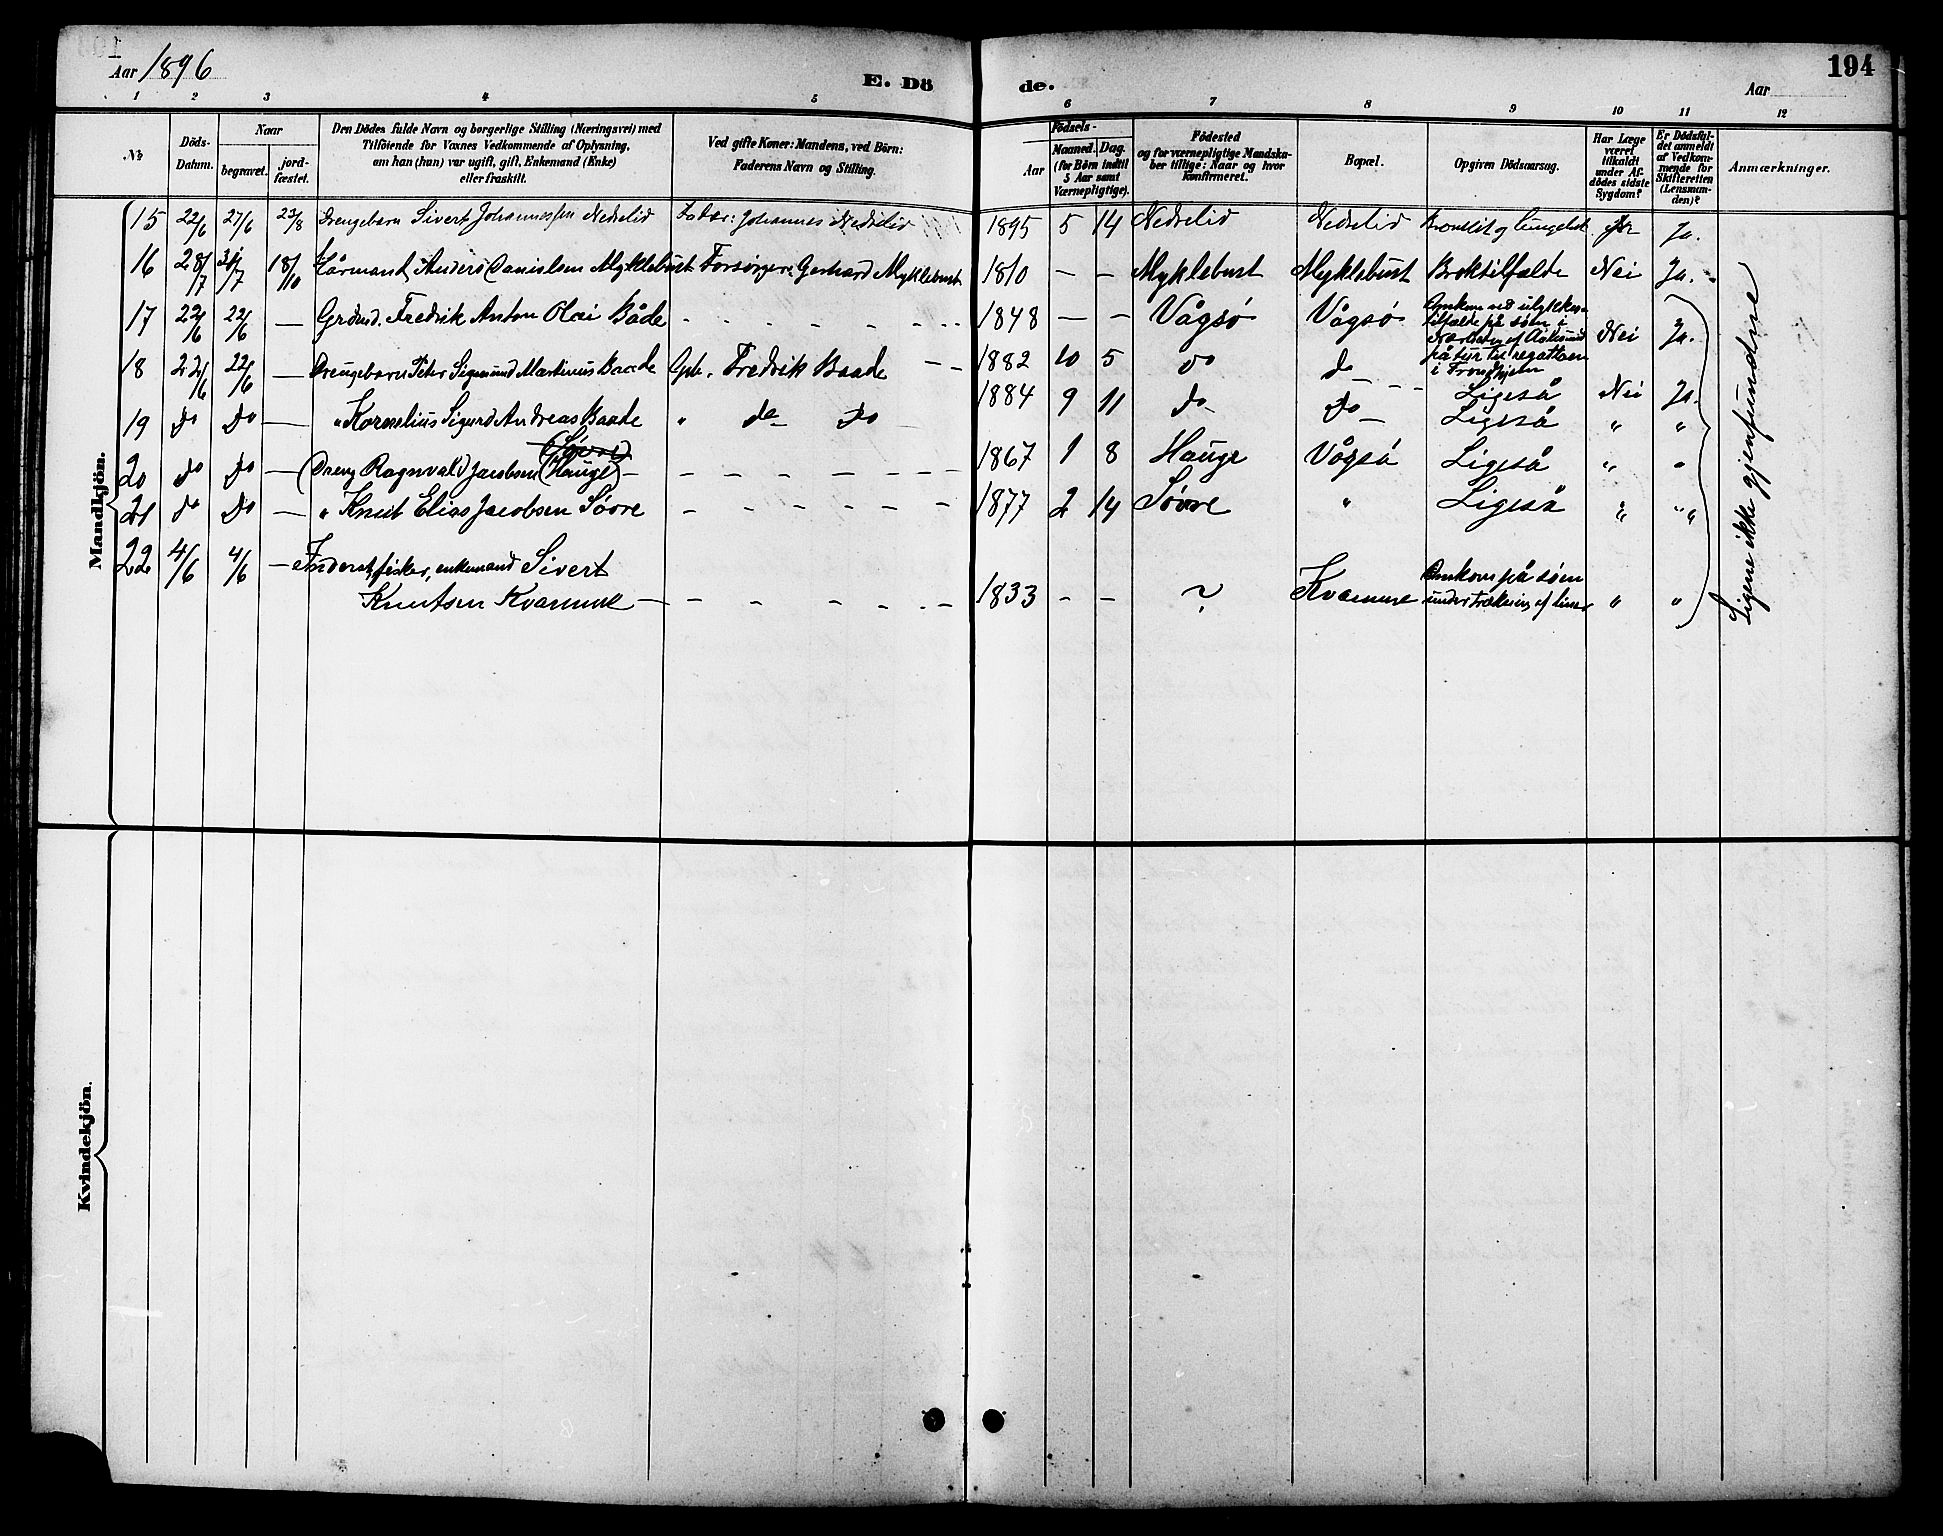 Aar 1896
E. Dö
de.
Aar
194
1 2 3 4 5 6 7 8 9 10 11 12
№
Döds-Datum.
Naar
begravet.
jord-fæstet.
Den Dödes fulde Navn og borgerlige Stilling (Næringsvei) med
Tilföiende for Vaxnes Vedkommende af Oplysning,
om han (hun) var ugift, gift, Enkemand (Enke)
eller fraskilt.
Ved gifte Koner: Mandens, ved Börn:
Faderens Navn og Stilling.
Födsels-
Aar
Maaned. Dag.
(for Börn indtil
5 Aar samt
Værnepligtige).
Födested
og for værnepligtige Mandska-
ber tillige: Naar og hvor
konfirmeret.
Bopæl.
Opgiven Dödsaarsag.
Har Læge
været
tilkaldt
under Af-
dödes sidste
Sygdom?
Er Dödsfal-
det anmeldt
af Vedkom-
mende for
Skifteretten
(Lensman-
den)?
Anmærkninger.
Mandkjön.
15 22/6 27/6 23/8 Drengebarn Sivert Johannessen Nedrelid Fader: Johannes Nedrelid 1895 5 14 Nedrelid Nedrelid Ja.
16 28/7 31/7 18/10 Kårmand Anders Danielsen Myklebust Forsörger: Gerhard Myklebust 1810 — — Myklebust Myklebust Broktilfælde Nei Ja.
17 22/6 22/6 — Grdmd. Fredrik Anton Olai Både - - - - - - 1848 — — Vågsö Vågsö Omkom ved ulykkes-
tilfælde på söen i
Nærheden af Aalesund
på tur til regattaen
i Trondhjem Nei Ja.
18 22/6 22/6 — Drengebarn Peter Sigmund Martinus Baade Gpb. Fredrik Baade - - 1882 10 5 do do Ligeså Nei Ja.
19 do do — " Kornelius Sigurd Andreas Baade " do do 1884 9 11 do do Ligeså " "
20 do do — (Sövre)
Dreng Ragnvald Jacobsen (Hauge) - - - - - - 1867 1 8 Hauge Vågsö Ligeså " "
21 do do — " Knut Elias Jacobsen Sövre - - - - - - 1877 2 14 Sövre " Ligeså " "
22 4/6 4/6 — Inderst, fisker, enkemand Sivert
Knutsen Kvamme - - - - - - 1833 - - ? Kvamme Omkom på söen
under trækning af liner " "
Ligene ikke gjenfundne
Kvindekjön.